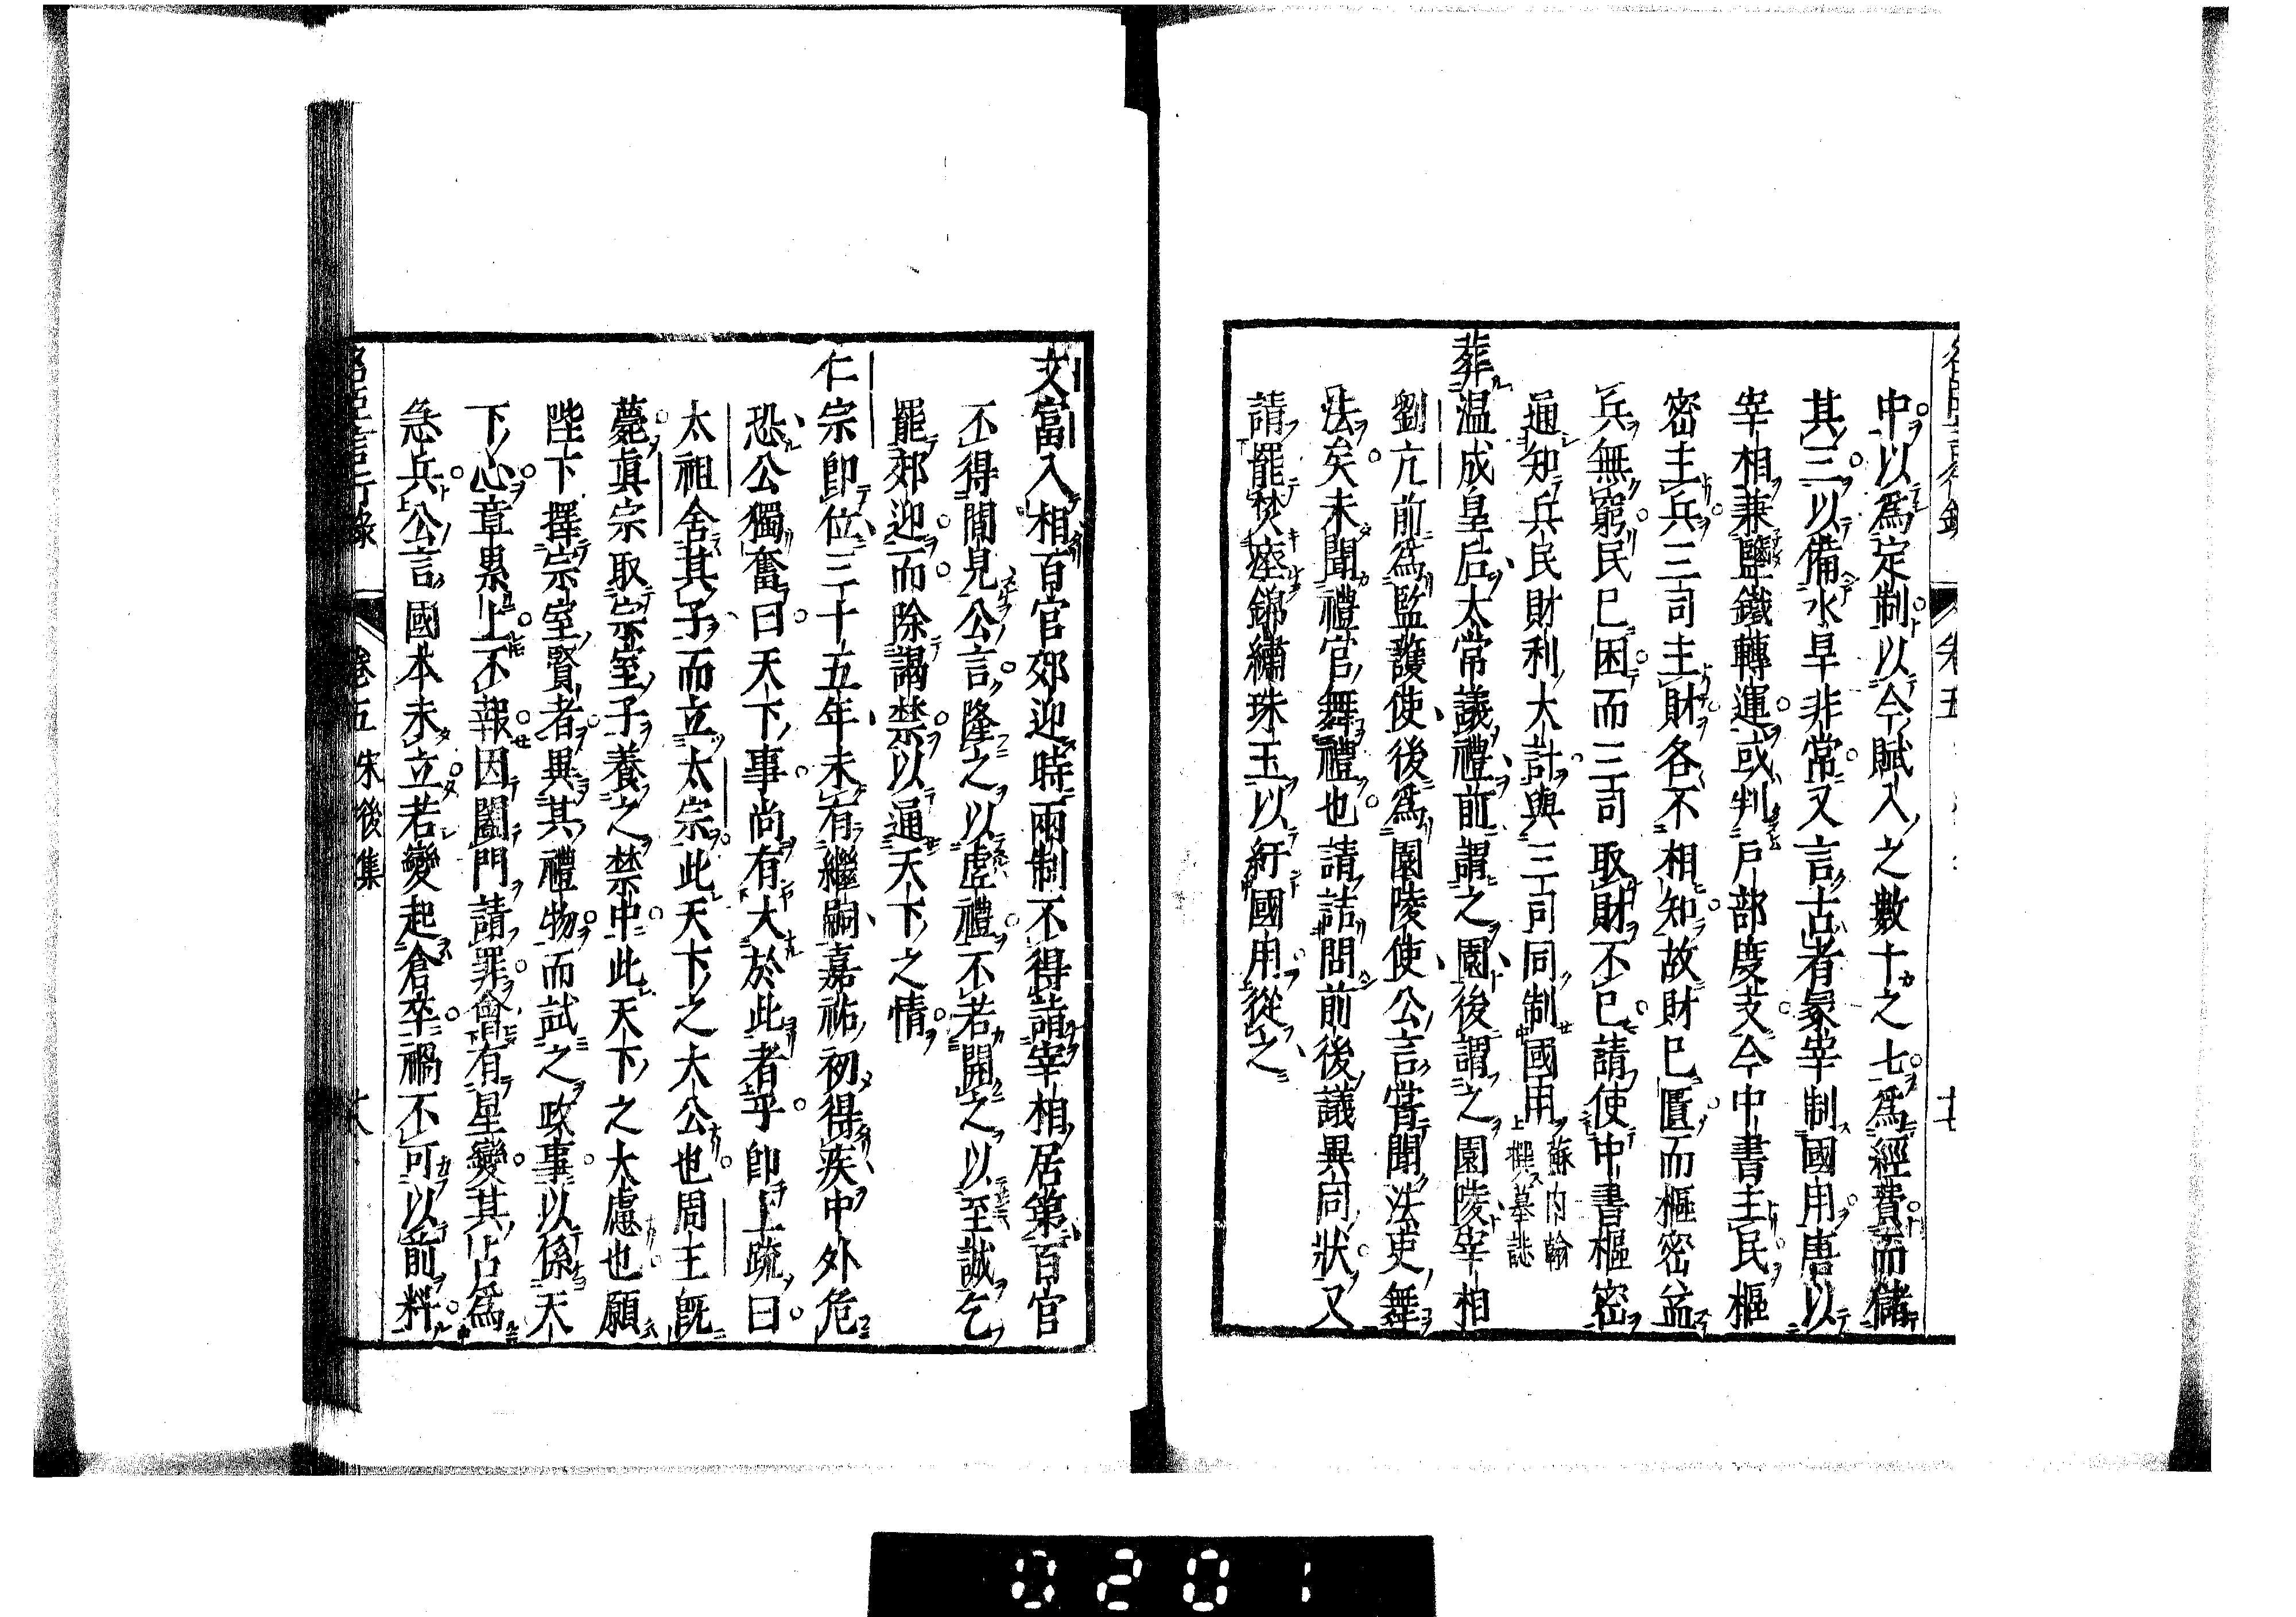 中以爲定制以今賦入之數十之七爲經費而儲
其三以備水旱非常又言古者冢宰制國用唐以
宰相兼鹽鐵轉運或判戶部度支今中書主民樞
密主兵三司主財各不相知故財已匱而樞密益
兵無窮民已困而三司取財不已請使中書樞密
通知兵民財利大計與三司同制國用 蘇内翰撰墓誌
葬温成皇后太常議禮前謂之園後謂之園陵宰相
劉沆前爲監護使後爲園陵使公言嘗聞法吏舞
法矣未聞禮官舞禮也請詰問前後議異同狀又
請罷焚瘞錦繡珠玉以紓國用從之
文富入相百官郊迎時兩制不得詣宰相居第百官
不得間見公言隆之以虚禮不若開之以至誠乞
罷郊迎而除謁禁以通天下之情
仁宗即位三十五年未有繼嗣嘉祐初得疾中外危
恐公獨奮曰天下事尚有大於此者乎即上疏曰
太祖舍其子而立太宗此天下之大公也周王既
薨眞宗取宗室子養之禁中此天下之大慮也願
陛下擇宗室賢者異其禮物而試之政事以係天
下心章累上不報因闔門請罪會有星變其占爲
急兵公言國本未立若變起倉卒禍不可以前料
名臣言行錄 卷五 宋後集
0201